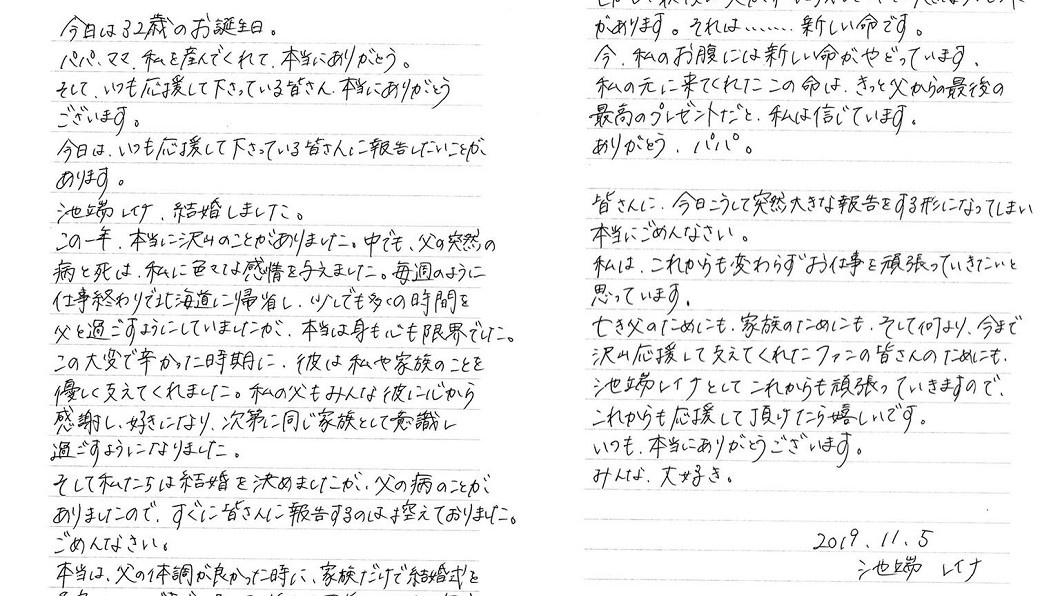 今日は32歳のお誕生日。
パパ、ママ、私を産んでくれて、本当にありがとう。
そして、いつも応援して下さっている皆さん、本当にありがとう
ございます。
今日は、いつも応援して下さっている皆さんに報告したいことが
あります。
池端レイナ、結婚しました。
この一年、本当に沢山のことがありました。中でも、父の突然の
病と死は、私に色々な感情を与えました。毎週のように
仕事終わりで北海道に帰省し、少しでも多くの時間を
父と過ごすようにしていましたが、本当は身も心も限界でした。
この大変で辛かった時期に、彼は私や家族のことを
優しく支えてくれました。私の父もみんな彼に心から
感謝し、好きになり、次第に同じ家族として意識し
過ごすようになりました。
そして私たちは結婚を決めましたが、父の病のことが
ありましたので、すぐに皆さんに報告するのは控えておりました。
ごめんなさい。
本当は、父の体調が良かった時に、家族だけで結婚式を
があります。それは……新しい命です。
今、私のお腹には新しい命がやどっています、
私の元に来てくれたこの命は、きっと父からの最後の
最高のプレゼントだと、私は信じています。
ありがとう、パパ。
皆さんに、今日こうして突然大きな報告をする形になってしまい
本当にごめんなさい。
私は、これからも変わらずお仕事を頑張っていきたいと
思っています。
亡き父のためにも、家族のためにも、そして何より、今まで
沢山応援して支えてくれたファンの皆さんのためにも、
池端レイナとしてこれからも頑張っていきますので、
これからも応援して頂けたら嬉しいです。
いつも、本当にありがとうございます。
みんな、大好き。
2019.11.5
池端 レイナ